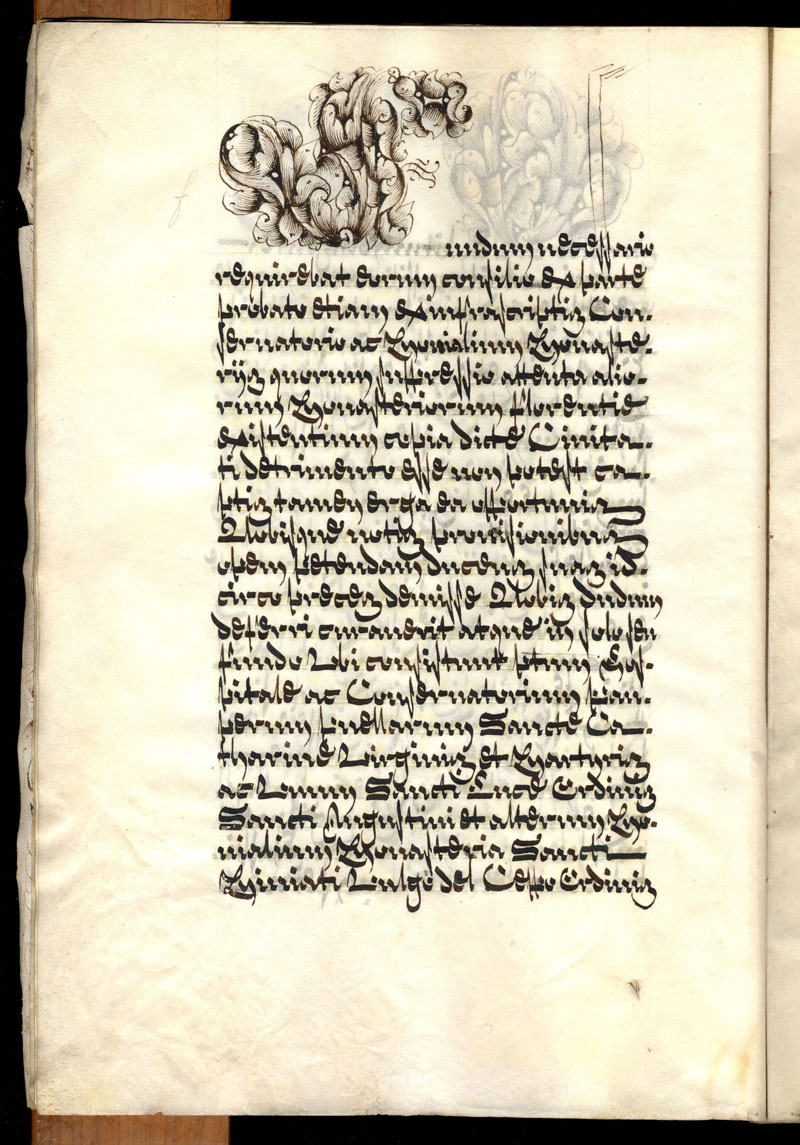 mdum necessario
requirebat eorum consilio ex parte
probato etiam ex infrascriptis Con-
servatorio ac Monialium Monaste-
rijs quorum suppressio attenta alio-
rum Monasteriorum florentie
existentium copia dicte Civita-
ti detrimento esse non potest ca-
ptis tamen erga ea opportunis
Nobisque notis provisionibus
opem petendam ducens suas id-
circo preces demisse Nobis dudum
deferri curaverit atque in solo seu
fundo Vbi consistunt ptum Hos-
pitale ac Conservatorium pau-
perum puellarum Sancte Ca-
tharine Virginis et Martyris
ac Vnum Sancti Luce Ordinis
Sancti Augustini et alterum Mo-
nialium Monasteria Sancti
Miniati Vulgo del Ceppo Ordinis